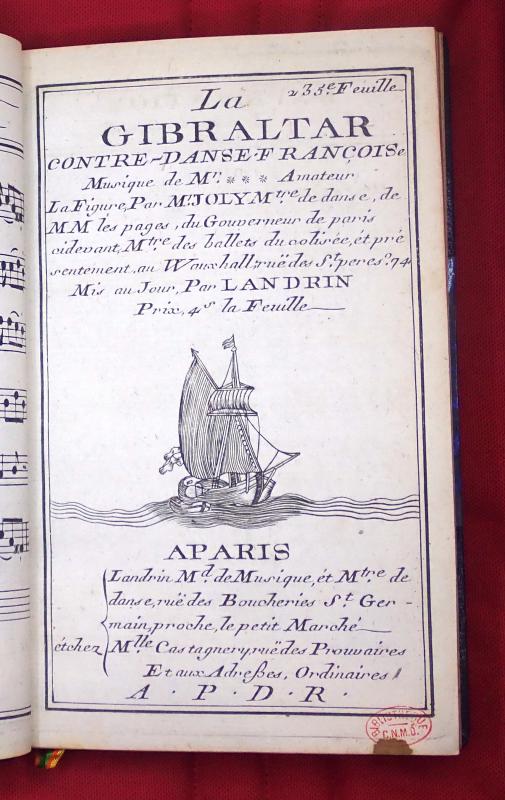 235e. Feuille
La
GIBRALTAR
CONTRE-DANSE-FRANÇOISe
Musique de Mr. *** Amateur
La Figure, Par Mr. JOLY Mtre. de danse, de
MM les pages, du Gouverneur de paris
cidevant, Mtre des ballets du colisée, ét pré
sentement, au Wauxhall; ruë des St. peres no. 74
Mis au Jour, Par LANDRIN
Prix, 4s la Feuille
APARIS
étchez
Landrin Md. de Musique, ét Mtre. de
danse, ruë des Boucheries St. Ger-
main, proche, le petit Marché
Mlle Castagnery, ruë des Prouvaires
Et aux Adreßes, Ordinaires
A · P · D · R ·
BIBLIOTHEQUE
C.N.M.D.